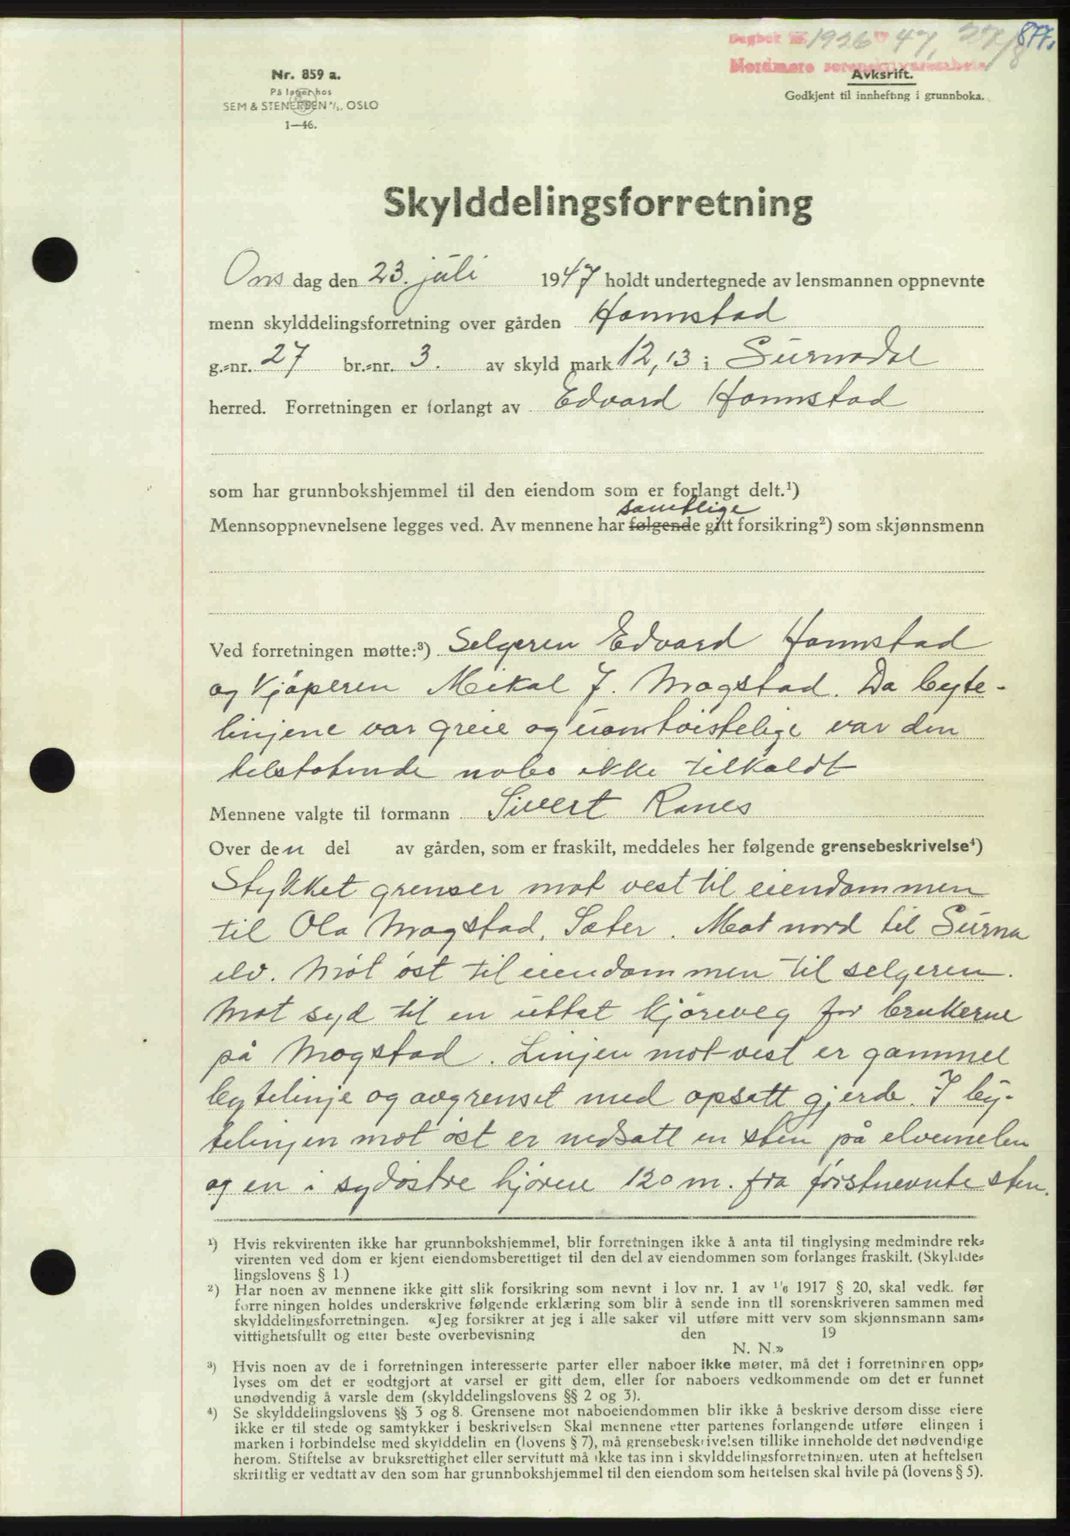 Dagbok nr. 1926 19 47, 27/8 877.
Nordmøre sorenskriverembete
Nr. 859 a.
På lager hos
SEM & STENERSEN A/S, OSLO
1—46.
Avkskrift.
Godkjent til innhefting i grunnboka.
Skylddelingsforretning
Ons dag den 23. juli 1947 holdt undertegnede av lensmannen oppnevnte
menn skylddelingsforretning over gården Hamnstad
g.=nr. 27 br.=nr. 3. av skyld mark 12,13 i Surnadal
herred. Forretningen er forlangt av Edvard Hamnstad
som har grunnbokshjemmel til den eiendom som er forlangt delt.¹)
samtlige
Mennsoppnevnelsene legges ved. Av mennene har følgende gitt forsikring²) som skjønnsmenn
Ved forretningen møtte:³) Selgeren Edvard Hamnstad
og kjøperen Mikal J. Mogstad. Da byte-
linjene var greie og uomtvistelige var den
tilstøtende nabo ikke tilkaldt
Mennene valgte til formann Sivert Ranes
Over den del av gården, som er fraskilt, meddeles her følgende grensebeskrivelse⁴)
Stykket grenser mot vest til eiendommen
til Ola Mogstad, Sæter. Mot nord til Surna
elv. Mot øst til eiendommen til selgeren.
Mot syd til en uttat kjøreveg for brukerne
på Mogstad. Linjen mot vest er gammel
bytelinje og avgrenset med opsatt gjerde. I by-
telinjen mot øst er nedsatt en sten på elvemelen
og en i sydøstre hjørne 120 m. fra førstnevnte sten.
¹) Hvis rekvirenten ikke har grunnbokshjemmel, blir forretningen ikke å anta til tinglysing medmindre rek=
virenten ved dom er kjent eiendomsberettiget til den del av eiendommen som forlanges fraskilt. (Skyldde=
lingslovens § 1)
²) Har noen av mennene ikke gitt slik forsikring som nevnt i lov nr. 1 av 1/6 1917 § 20, skal vedk. før
forretningen holdes underskrive følgende erklæring som blir å sende inn til sorenskriveren sammen med
skylddelingsforretningen. «Jeg forsikrer at jeg i alle saker vil utføre mitt verv som skjønnsmann sam=
vittighetsfullt og etter beste overbevisning den 19
N. N.»
³) Hvis noen av de i forretningen interesserte parter eller naboer ikke møter, må det i forretningen opp=
lyses om det er godtgjort at varsel er gitt dem, eller for naboers vedkommende om det er funnet
unødvendig å varsle dem (skylddelingslovens §§ 2 og 3).
⁴) Se skylddelingslovens §§ 3 og 8. Grensene mot naboeiendommen blir ikke å beskrive dersom disse eiere
ikke er til stede og samtykker i beskrivelsen Skal mennene etter partenes forlangende utføre elingen i
marken i forbindelse med skylddelin en (lovens § 7), må grensebeskrivelsen tillike inneholde det nødvendige
herom. Stiftelse av bruksrettighet eller servitutt må ikke tas inn i skylddelingsforretningen. uten at heftelsen
skriftlig er vedtatt av den som har grunnbokshjemmel til den eiendom som heftelsen skal hvile på (lovens § 5).